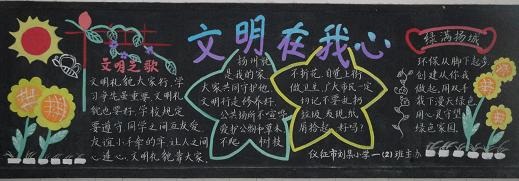 文明在我心
文明之歌
文明礼貌大家行,学
习争先最重要,文明礼
貌也要行。学校规定
要遵守,同学之间互友爱,
友谊小手牵的牢,让人之间
心连心,文明礼貌靠大家。
扬州市
是我的家,
大家共同守护他,
文明行是修养好。
公共场所不喧哗,
爱护公物和草木
不起 树枝
不折花,自觉上街
做卫生,广大市民一定
切记不要乱扔
垃圾,发现纸
屑拾起,好吗?
仪征市刘集小学一(2)班主办
绿满扬城
环保从脚下起步,
创建从你我
做起,用双手
栽下漫天绿色,
用心灵守望
绿色家园。